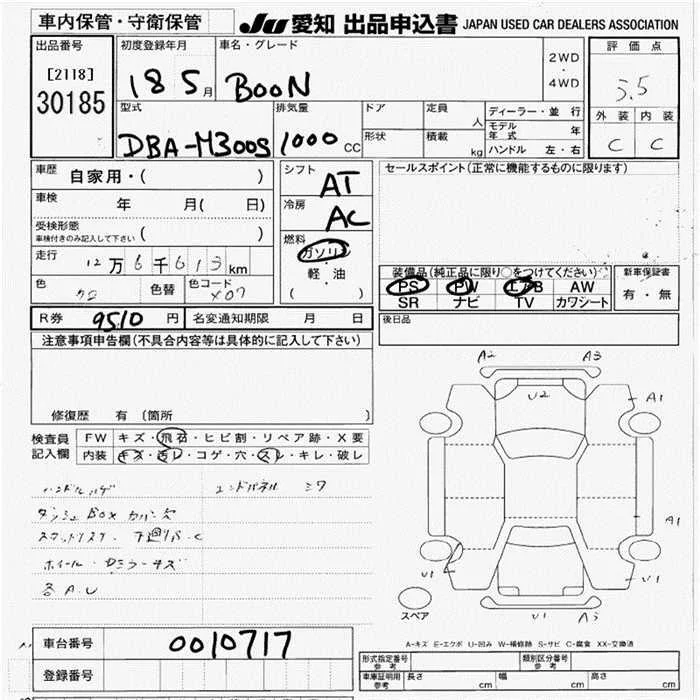 車内保管・守衛保管
JU 愛知 出品申込書 JAPAN USED CAR DEALERS ASSOCIATION
出品番号
[2118]
30185
初度登録年月
18 5 月
車名・グレード
BOON
2WD
・
4WD
評価点
3.5
外装 内装
C C
型式
DBA-M300S
排気量
1000 CC
ドア
形状
定員
人
積載
kg
ディーラー・並行
モデル年式 年
ハンドル 左・右
車歴
自家用・( )
車検
年 月( 日)
受検形態
車検付きのみ記入して下さい ( )
走行
12万6千613km
色
クロ
色替
色コード
X07
シフト
AT
冷房
AC
燃料
ガソリン
・
軽・油
( )
セールスポイント(正常に機能するものに限ります)
装備品(純正品に限り○をつけてください)
PS PW エアB AW
SR ナビ TV カワシート
新車保証書
有・無
R券 9510 円 名変通知期限 月 日
後日品
注意事項申告欄(不具合内容等は具体的に記入して下さい)
修復歴 有 〔箇所 〕
検査員
記入欄
FW キズ・飛石・ヒビ割・リペア跡・X要
内装 キズ・汚レ・コゲ・穴・スレ・キレ・破レ
ハンドルハゲ
エンドパネル
ダッシュBOXカバー欠
ホイール・Dミラーキズ
各A.U
A2 A3
U2
A1
A1
U1
U1
U1 A3
スペア
A-キズ E-エクボ U-凹み W-補修跡 S-サビ C-腐食 XX-交換済
車台番号 0010717
登録番号
形式指定番号
参考
類別区分番号
参考
車庫証明用
参考
長さ cm 幅 cm 高さ cm